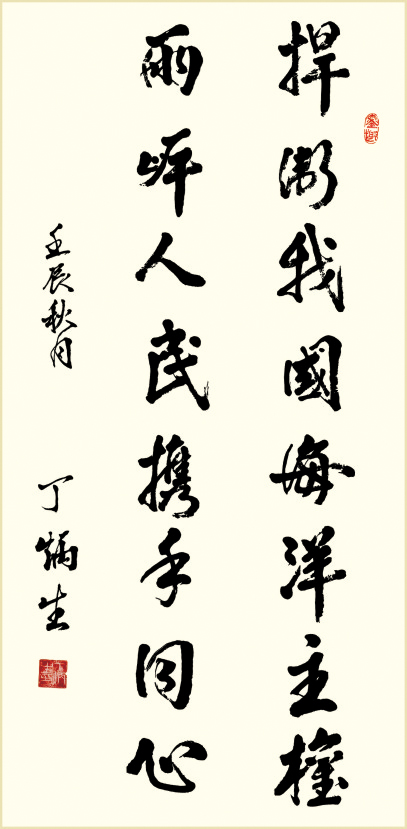 捍衛我國海洋主權
兩岸人民携手同心
壬辰秋月
丁炳生